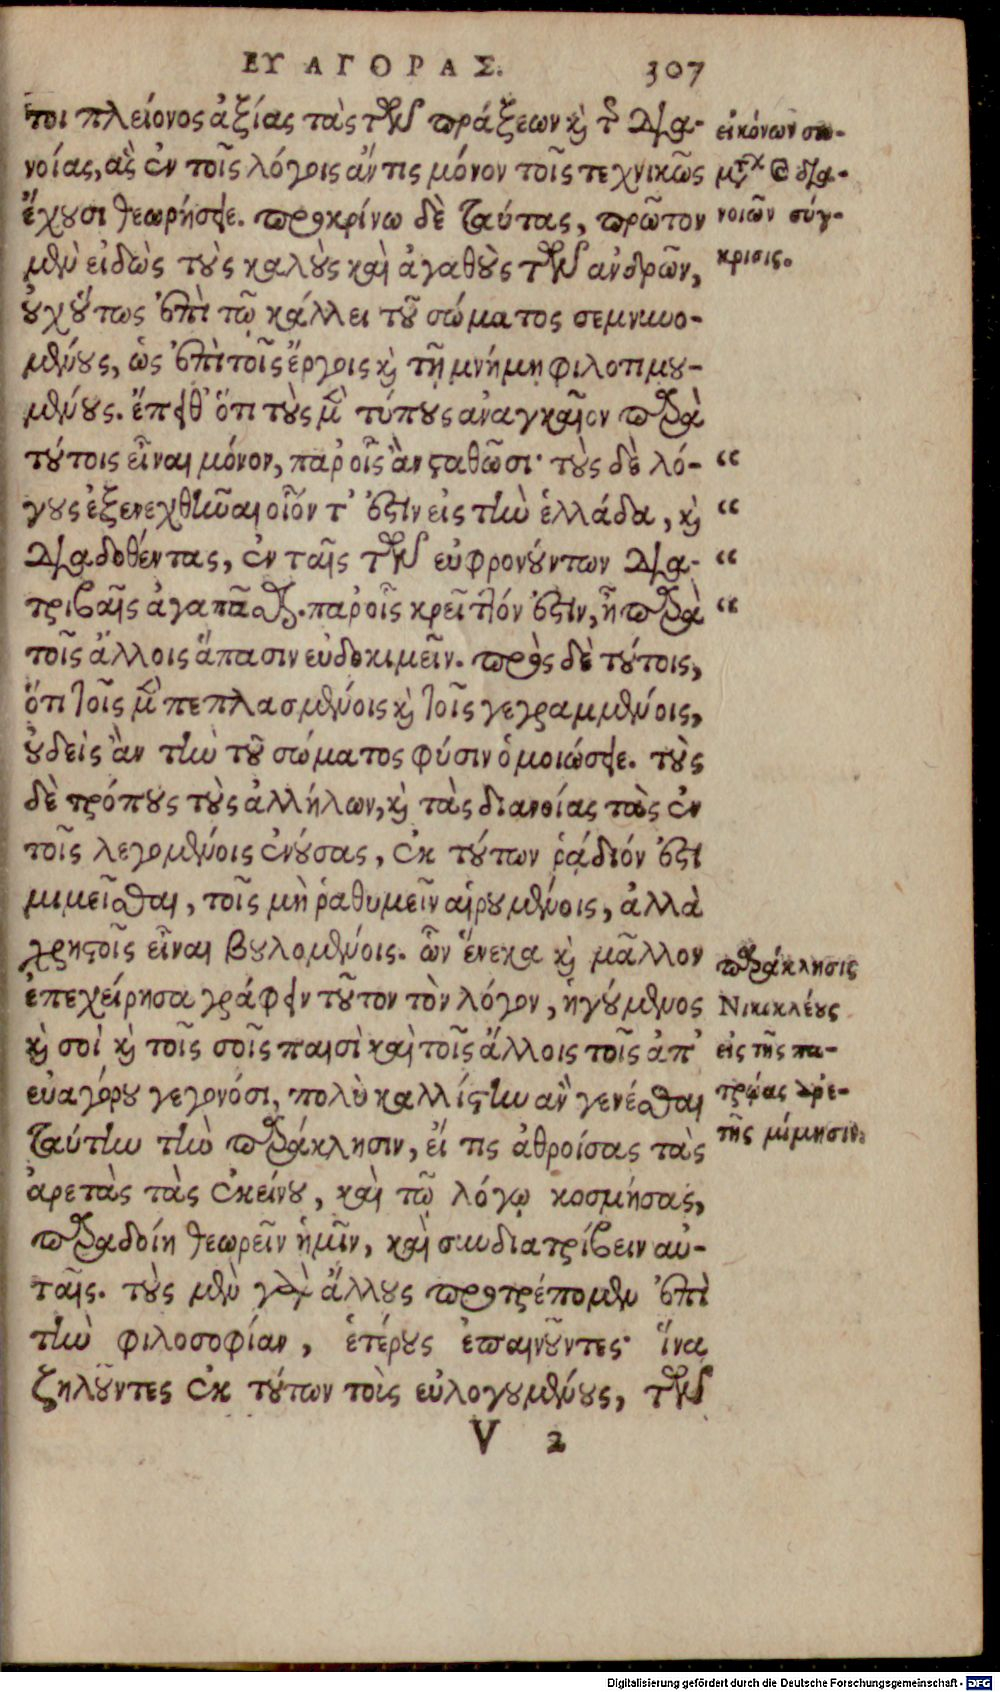 ΕΥΑΓΟΡΑΣ. 307
τοι πλείονος ἀξίας τὰς τῶν πράξεων καὶ τῆς δια-
νοίας, ἃς ἐν τοῖς λόγοις ἄν τις μόνον τοῖς τεχνικῶς
ἔχουσι θεωρήσειε. προκρίνω δὲ ταύτας, πρῶτον
μὲν εἰδὼς τοὺς καλοὺς καὶ ἀγαθοὺς τῶν ἀνδρῶν,
οὐχ οὕτως ἐπὶ τῷ κάλλει τοῦ σώματος σεμνυνο-
μένους, ὡς ἐπὶ τοῖς ἔργοις καὶ τῇ μνήμῃ φιλοτιμου-
μένους. ἔπειθ' ὅτι τοὺς μὲν τύπους ἀναγκαῖον παρὰ
τούτοις εἶναι μόνον, παρ' οἷς ἂν σταθῶσι· τοὺς δὲ λό- “
γους ἐξενεχθῆναι οἷόν τ' ἐστὶν εἰς τὴν ἑλλάδα, καὶ “
διαδοθέντας, ἐν ταῖς τῶν εὐφρονούντων δια- “
τριβαῖς ἀγαπᾶσθαι. παρ' οἷς κρεῖττόν ἐστιν, ἢ παρὰ “
τοῖς ἄλλοις ἅπασιν εὐδοκιμεῖν. πρὸς δὲ τούτοις,
ὅτι τοῖς μὲν πεπλασμένοις καὶ τοῖς γεγραμμένοις,
οὐδεὶς ἂν τὴν τοῦ σώματος φύσιν ὁμοιώσειε. τοὺς
δὲ τρόπους τοὺς ἀλλήλων, καὶ τὰς διανοίας τὰς ἐν
τοῖς λεγομένοις ἐνούσας, ἐκ τούτων ῥᾴδιόν ἐστι
μιμεῖσθαι, τοῖς μὴ ῥαθυμεῖν αἱρουμένοις, ἀλλὰ
χρηστοῖς εἶναι βουλομένοις. ὧν ἕνεκα καὶ μᾶλλον
ἐπεχείρησα γράφειν τοῦτον τὸν λόγον, ἡγούμενος
καὶ σοὶ καὶ τοῖς σοῖς παισὶ καὶ τοῖς ἄλλοις τοῖς ἀπ'
εὐαγόρου γεγονόσι, πολὺ καλλίστην ἂν γενέσθαι
ταύτην τὴν παράκλησιν, εἴ τις ἀθροίσας τὰς
ἀρετὰς τὰς ἐκείνου, καὶ τῷ λόγῳ κοσμήσας,
παραδοίη θεωρεῖν ἡμῖν, καὶ συνδιατρίβειν αὐ-
ταῖς. τοὺς μὲν γὰρ ἄλλους προτρέπομεν ἐπὶ
τὴν φιλοσοφίαν, ἑτέρους ἐπαινοῦντες· ἵνα
ζηλοῦντες ἐκ τούτων τοὶς εὐλογουμένους, τῶν
V 2
εἰκόνων σω-
μτικ καὶ δια-
νοιῶν σύγ-
κρισις.
παράκλησις
Νικικλέους
εἰς τῆς πα-
τρῴας ἀρε-
τῆς μίμησιν.
Digitalisierung gefördert durch die Deutsche Forschungsgemeinschaft - DFG